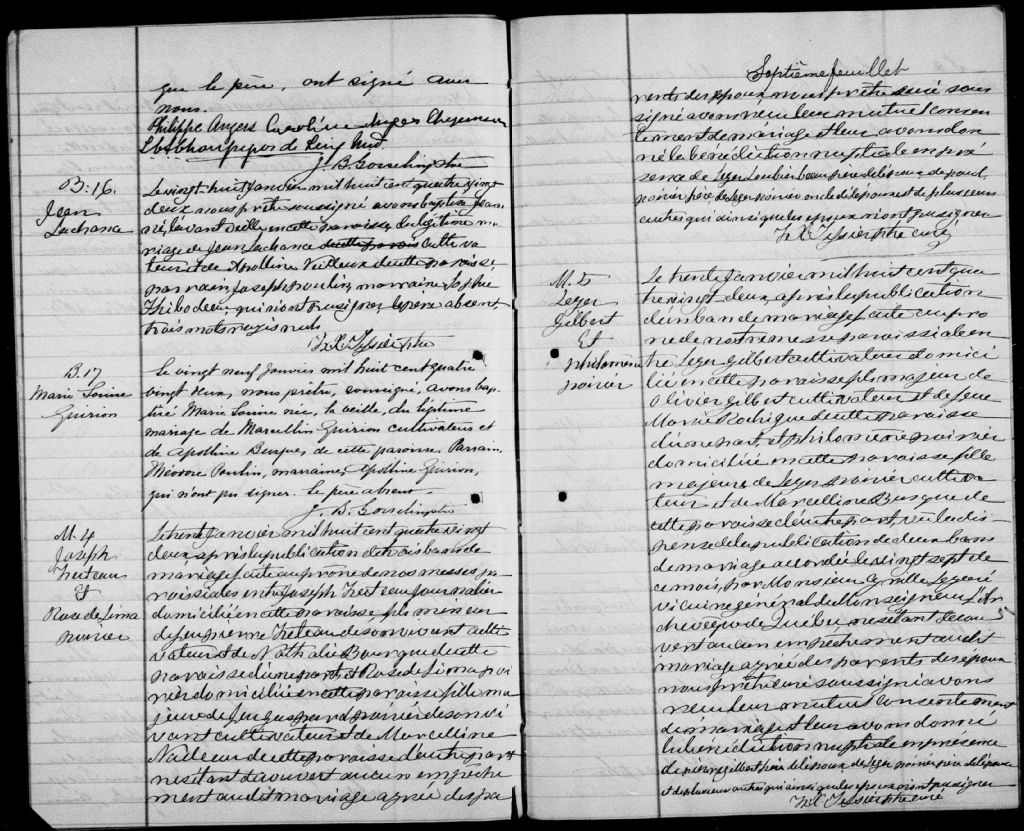 que le père, ont signé avec
nous.
Philippe Angers Caroline Angers Chegeneur
J. B. Gosselin ptre
B. 16.
Jean
Lachance
Le vingt huit janvier mil huit cent quatre vingt
deux nous prêtre soussigné avons baptisé Jean
né, l'avant veille en cette paroisse, du légitime ma-
riage de Jean Lachance cette paroi cultiva
teur et de Apolline Veilleux de cette paroisse,
parrain, Joseph Poulin, marraine, Sophie
Thibodeau, qui n'ont pu signer, le père absent
trois mots rayés nuls
F. X. Tessier ptre
B. 17
Marie Louise
Quirion
Le vingt neuf janvier mil huit cent quatre
vingt deux, nous prêtre, soussigné, avons bap
tisé Marie Louise née, la veille, du légitime
mariage de Marcellin Quirion cultivateur et
de Apolline Busque, de cette paroisse. Parrain,
Théodore Poulin, marraine, Apolline Quirion,
qui n'ont pu signer. le père absent.
J. B. Gosselin ptre
M. 4
Joseph
Fruteau
et
Rose de Lima
poirier
Le trente Janvier mil huit cent quatre vingt
deux, après la publication de trois bans de
mariage faite au prône de nos messes pa
roissiales entre Joseph Journalier
domicilié en cette paroisse, fils mineur
de feu pierre de son vivant culti
vateur et de Nathalie Bourque de cette
paroisse d'une part, et Rose de Lima poi
rier domiciliée en cette paroisse fille ma
jeure de feu gaspard poirier de son vi
vant cultivateur et de Marcelline
Nadeau de cette paroisse d'autre part
n'étant découvert aucun empêche
ment au dit mariage agrée des pa
Septième feuillet
rents des époux, nous prêtre curé sous
signé avons reçu leur mutuel consen
tement de mariage et leur avons don
né la bénédiction nuptiale en pré
sence de Leger beau père de l'époux, de paul
poirier frère, de Leger poirier oncle de l'épouse et de plusieurs
autres qui ainsi que les époux n'ont pu signer
F. X. Tessier ptre curé
M. 5
Leger
Gilbert
Et
philomène
poirier
Le trente Janvier mil huit cent qua
tre vingt deux, après la publication
d'un ban de mariage faite au prô
ne de notre messe paroissiale en
tre Leger Gilbert cultivateur domici
lié en cette paroisse fils majeur de
Olivier Gilbert cultivateur et de feue
Marie Rodrigue de cette paroisse
d'une part, et philomène poirier
domiciliée en cette paroisse fille
majeure de Leger poirier cultiva
teur et de Marcelline Busque de
cette paroisse d'autre part, vu la dis
pense de la publication de deux bans
de mariage accordée le vingt sept de
ce mois, par Monsieur Cyrille Legaré
vicaire général de Monseigneur L'Ar
chevêque de Québec, n'étant décou
vert aucun empêchement au dit
mariage agrée des parents des époux
nous prêtre curé soussigné avons
reçu leur mutuel consentement
de mariage et leur avons donné
la bénédiction nuptiale en présence
de pierre gilbert frère de l'époux, de Leger poirier père de l'épouse
et de plusieurs autres qui ainsi que les époux n'ont pu signer
F. X. Tessier ptre curé